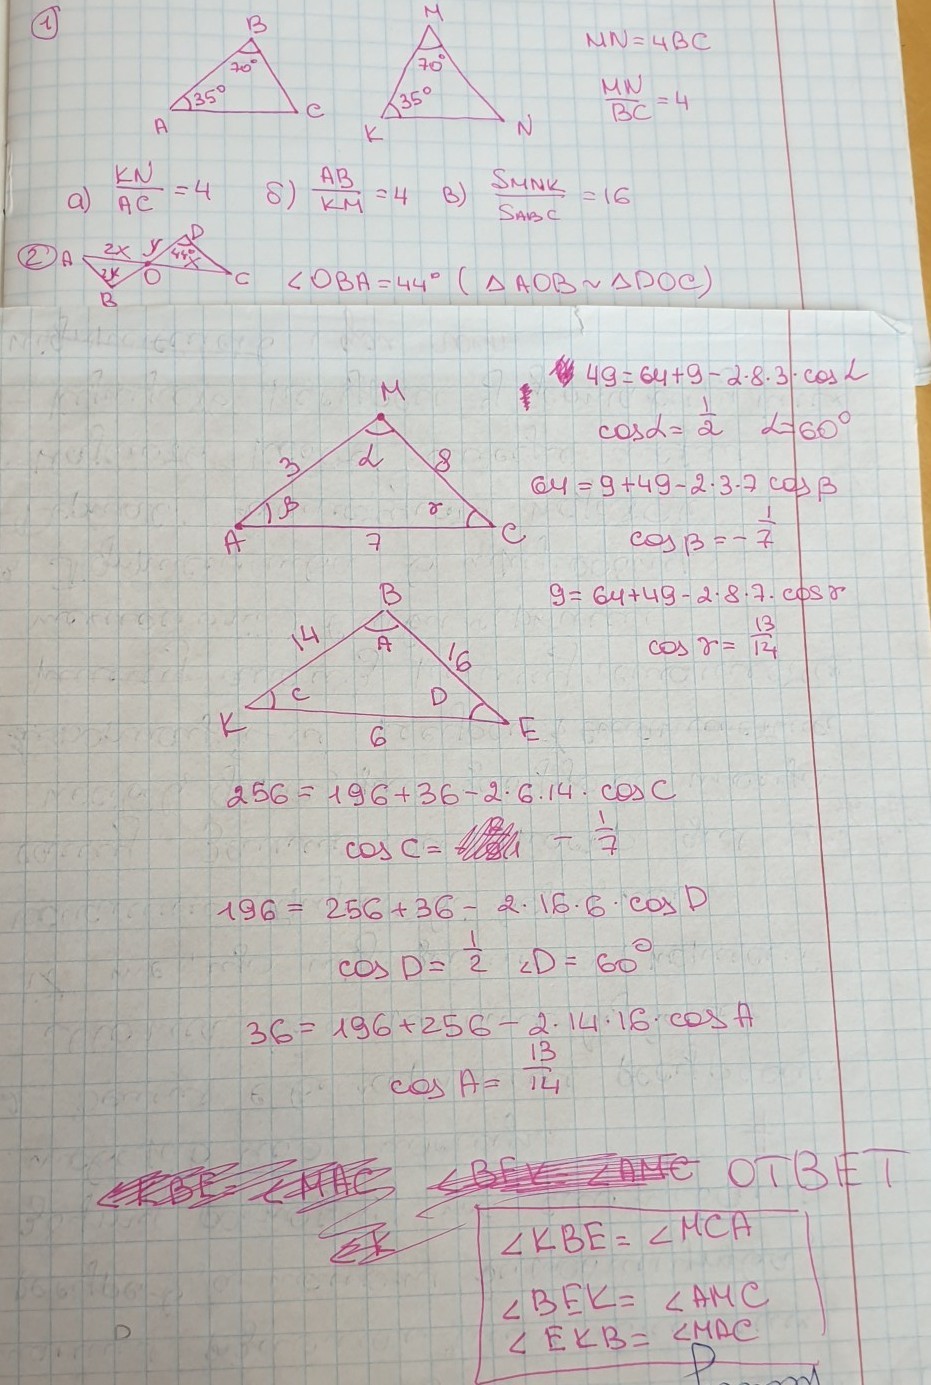 1
B
70°
35°
A
C
M
70°
35°
K
N
MN=4BC
MN/BC=4
а) KN/AC=4 б) AB/KM=4 в) SMNK/SABC=16
2
A 2x y D
44°
2y O x C
B
∠OBA=44° (△AOB~△DOC)
M
3 α 8
β γ
A 7 C
49=64+9-2·8·3·cosα
cosα=1/2 α=60°
64=9+49-2·3·7 cosβ
cosβ=-1/7
9=64+49-2·8·7·cosγ
cosγ=13/14
B
14 A 16
K C D E
6
256=196+36-2·6·14·cosC
cosC= -1/7
196=256+36-2·16·6·cosD
cosD=1/2 ∠D=60°
36=196+256-2·14·16·cosA
cosA=13/14
∠KBE= ∠MAC ∠BEK ∠AMC ОТВЕТ
EK
∠KBE=∠MCA
∠BEK=∠AMC
∠EKB=∠MAC